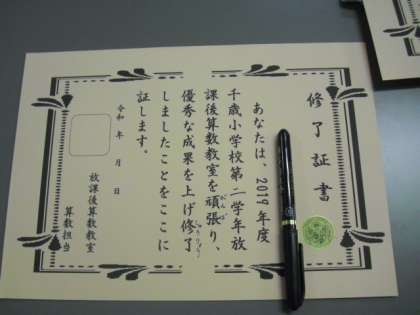 修了証書
あなたは、2019年度
千歳小学校第二学年放
課後算数教室を頑張り、
優秀な成果を上げ修了
しましたことをここに
証します。
令和 年 月 日
放課後算数教室
算数担当